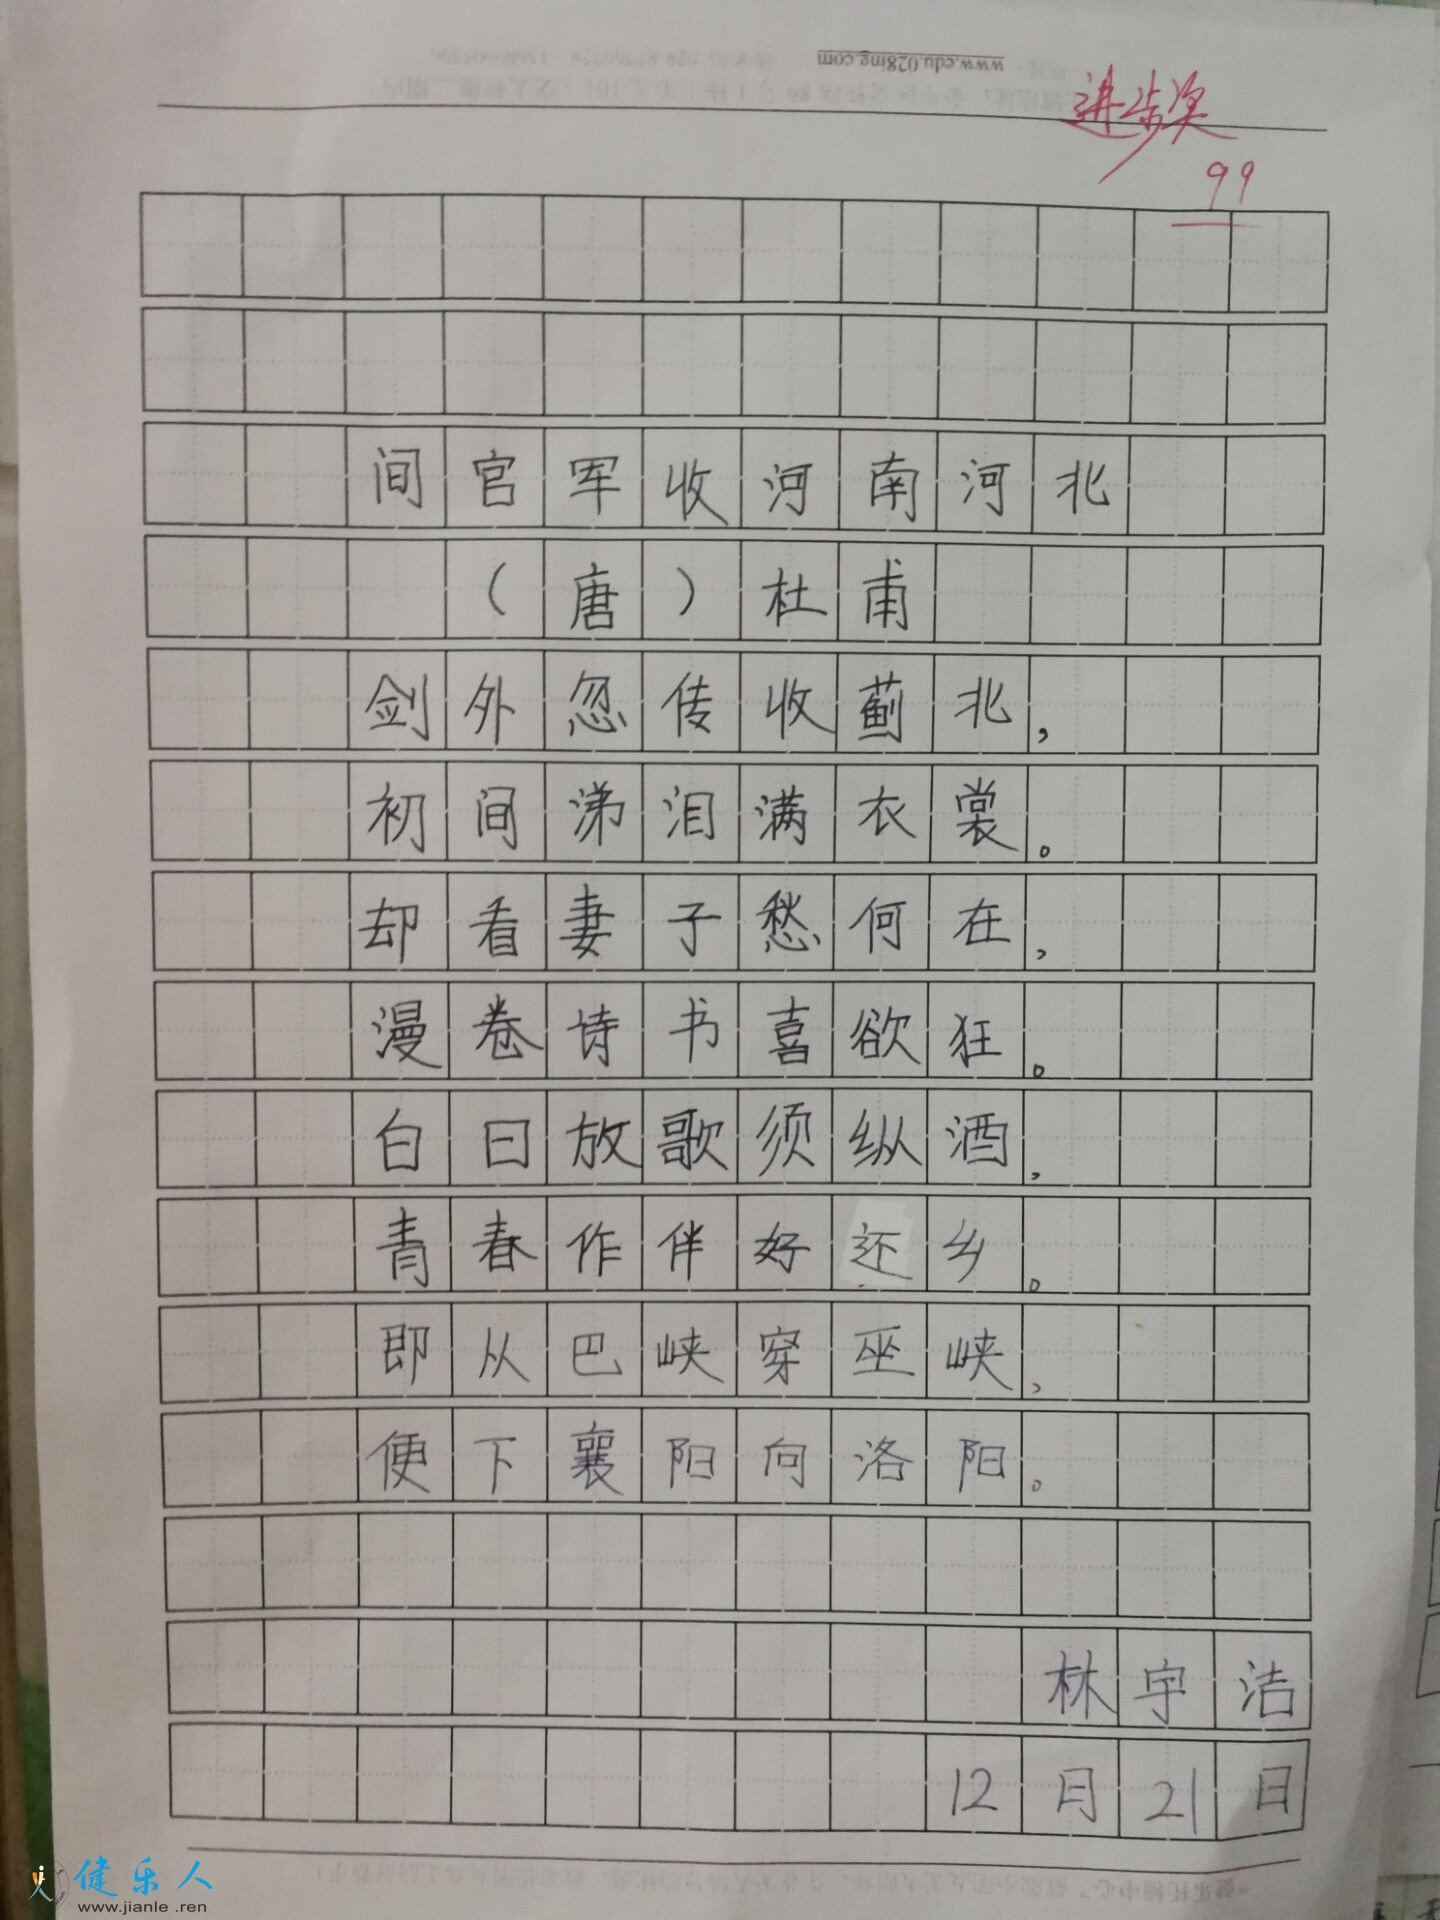 www.edu.028ing.com
进步奖
99
间官军收河南河北
（唐）杜甫
剑外忽传收蓟北，
初间涕泪满衣裳。
却看妻子愁何在，
漫卷诗书喜欲狂。
白日放歌须纵酒，
青春作伴好还乡。
即从巴峡穿巫峡，
便下襄阳向洛阳。
林宇洁
12月21日
健乐人
www.jianle.ren